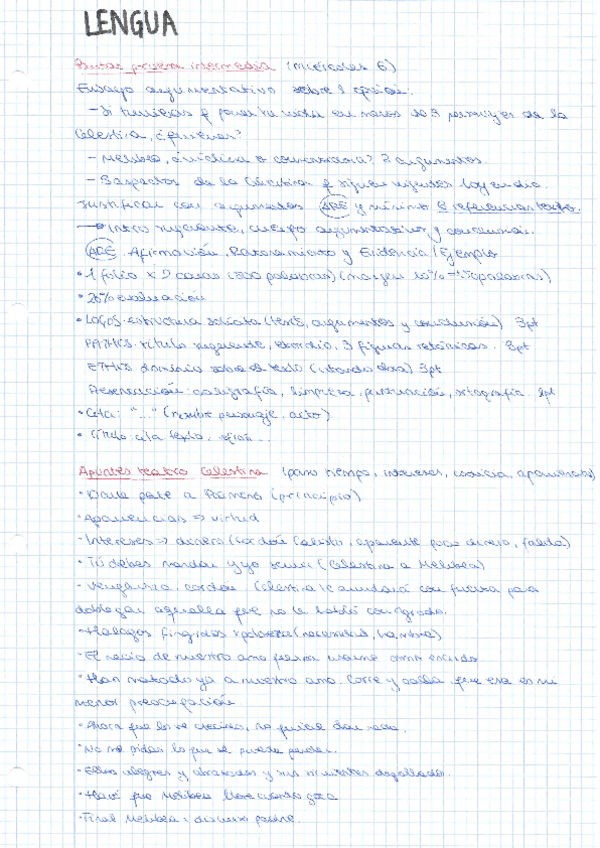 LENGUA
prueba intermedia (miércoles 6)
Ensayo argumentativo sobre 1 opción.
- Si tuvieses q poner tu vida en manos de 3 personajes de la
Celestina, ¿quiénes?
- Melibea, ¿víctica o ? 2 argumentos.
- 3 aspectos de la Celestina q siguen vigentes hoy en día.
Justificar con argumentos ARE y mínimo referencias texto.
Intro sugerente, cuerpo argumentativo y conclusión.
ARE. Afirmación, Razonamiento y Evidencia / Ejemplo
• 1 folio x 2 caras (500 palabras) (margen 10% palabras)
• 20% evaluación
• LOGOS: estructura sólida (tesis, argumentos y conclusión) 3pt
PATHOS: título sugerente, exordio, 3 figuras retóricas. 3pt
ETHOS: dominio sobre el texto 3pt
Presentación: caligrafía, limpieza, puntuación, ortografía. 1pt
• Cita: "..." (nombre personaje, acto)
• Título cita texto
Apuntes teatro Celestina (paso tiempo, intereses, codicia, apariencias)
• Pármeno (principio)
• Apariencias => virtud
• Intereses => dinero (cordón Calisto, aparente poco dinero, falda)
• Tú debes mandar y yo (Celestina a Melibea)
• Venganza, cordón. Celestina con fuerza para
doblegar aquella que no
• Halagos fingidos (necesidad, hambre)
• El necio de nuestro amo como escudo
• Han matado ya a nuestro amo. Corre y calla que esa es mi
menor preocupación
• Ahora que los ve crecidos, no quiere dar nada.
• No me pidas lo que se puede perder.
• Ellos alegres y abrazados y sus sirvientes degollados.
• Melibea llore cuando goza
• Final Melibea: discurso padre.